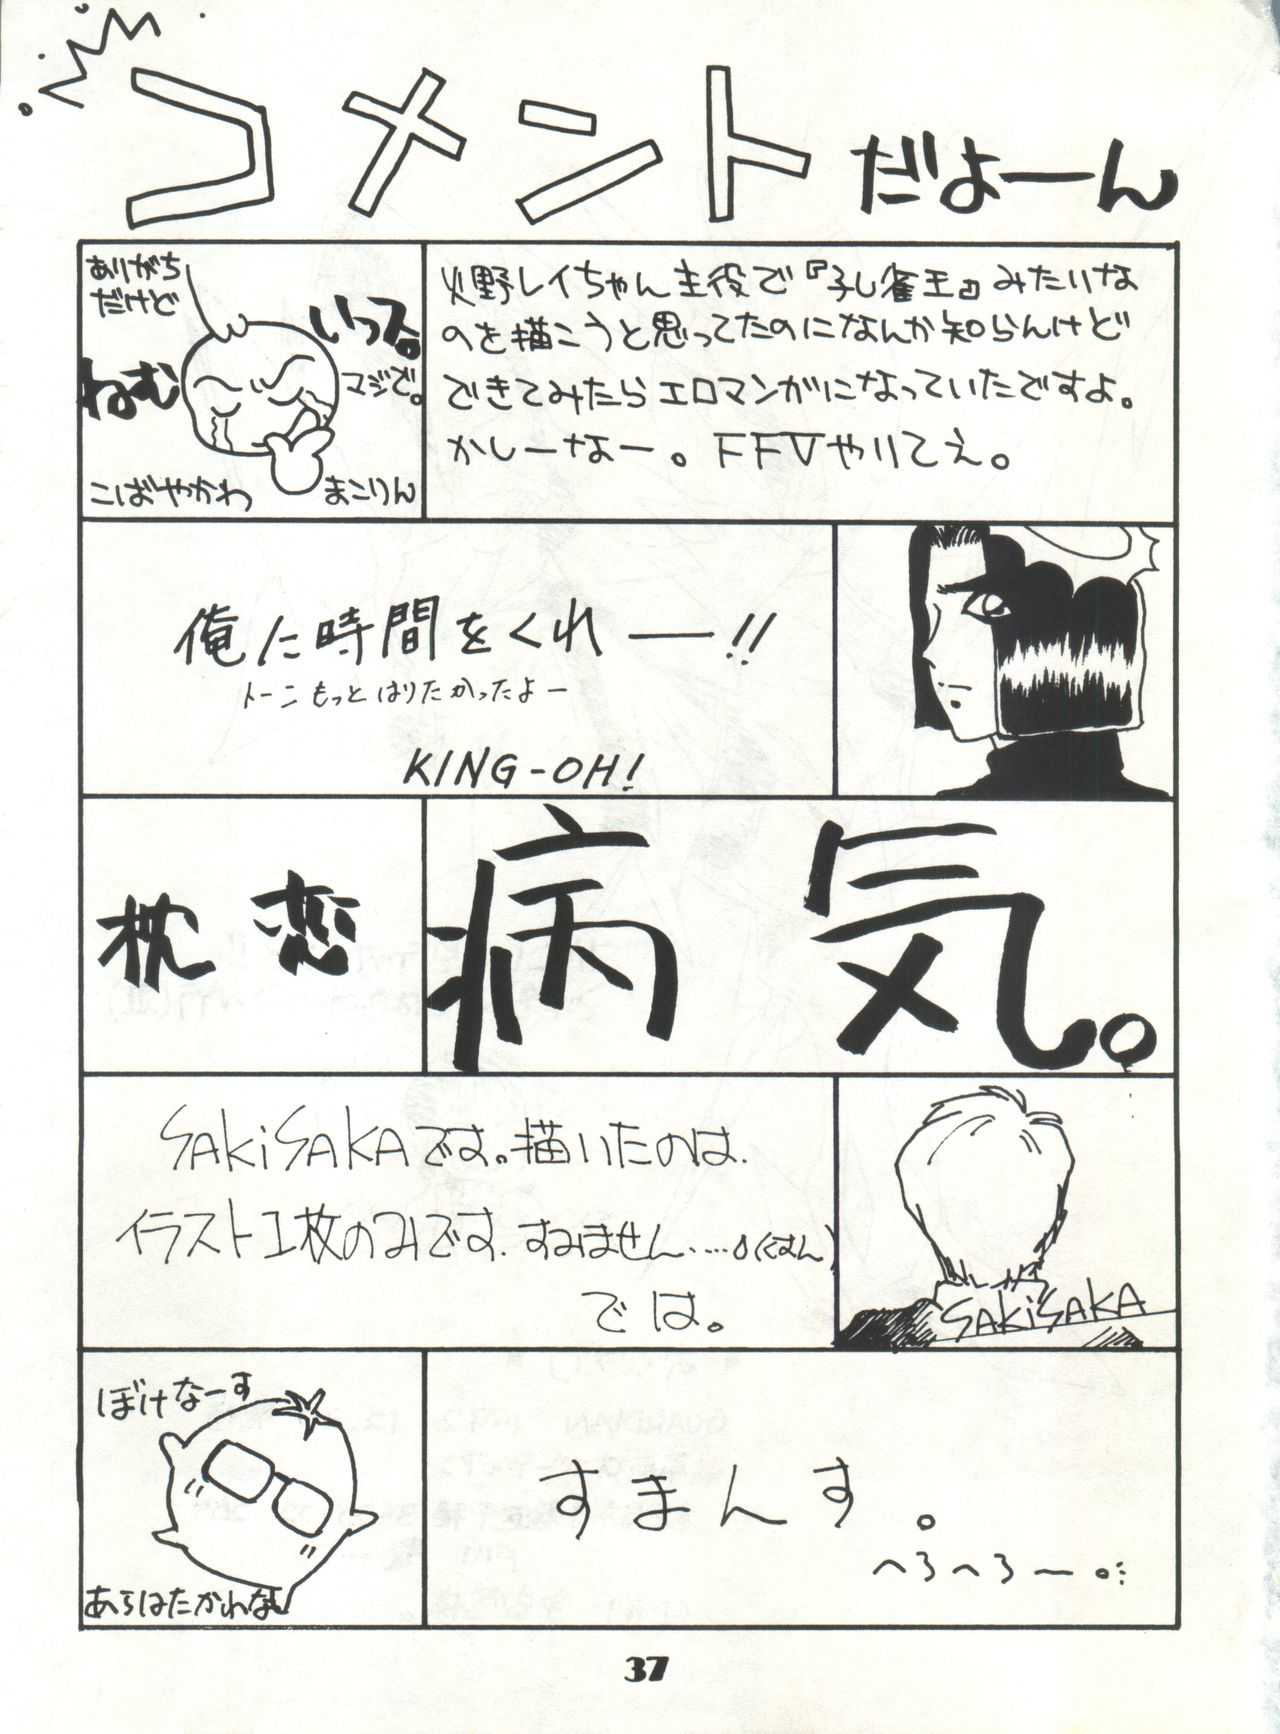 コメントだよーん
ありがち
だけど
ねむ
いっス。
マジで。
こばやかわ
まこりん
火野レイちゃん主役で『孔雀王』みたいな
のを描こうと思ってたのになんか知らんけど
できてみたらエロマンガになっていたですよ。
かしーなー。FFVやりてえ。
俺に時間をくれ――!!
トーンもっとはりたかったよー
KING-OH!
枕恋
病気。
SAKiSAKAです。描いたのは
イラスト1枚のみです.すみません……(くすん)
では。
SAKiSAKA
ぼけなーす
あらはたかれなし
すまんす。
へろへろー
37